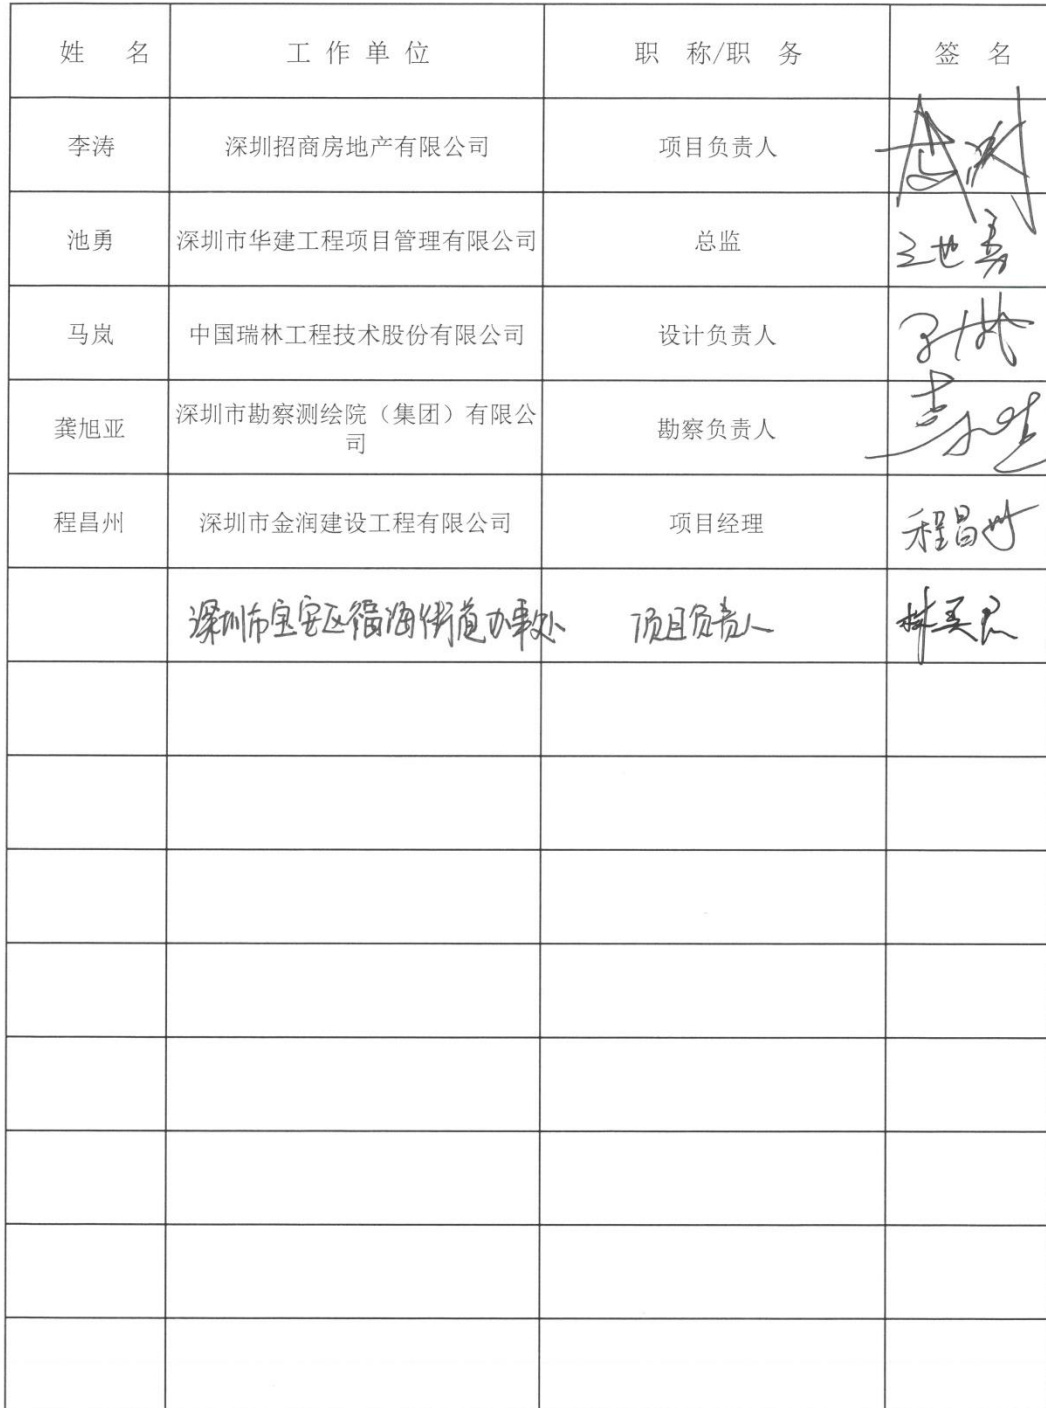 姓 名 工 作 单 位 职 称/职 务 签 名
李涛 深圳招商房地产有限公司 项目负责人
池勇 深圳市华建工程项目管理有限公司 总监 池勇
马岚 中国瑞林工程技术股份有限公司 设计负责人
龚旭亚 深圳市勘察测绘院（集团）有限公 勘察负责人
司
程昌州 深圳市金润建设工程有限公司 项目经理 程昌州
深圳市宝安区福海街道办事处 项目负责人